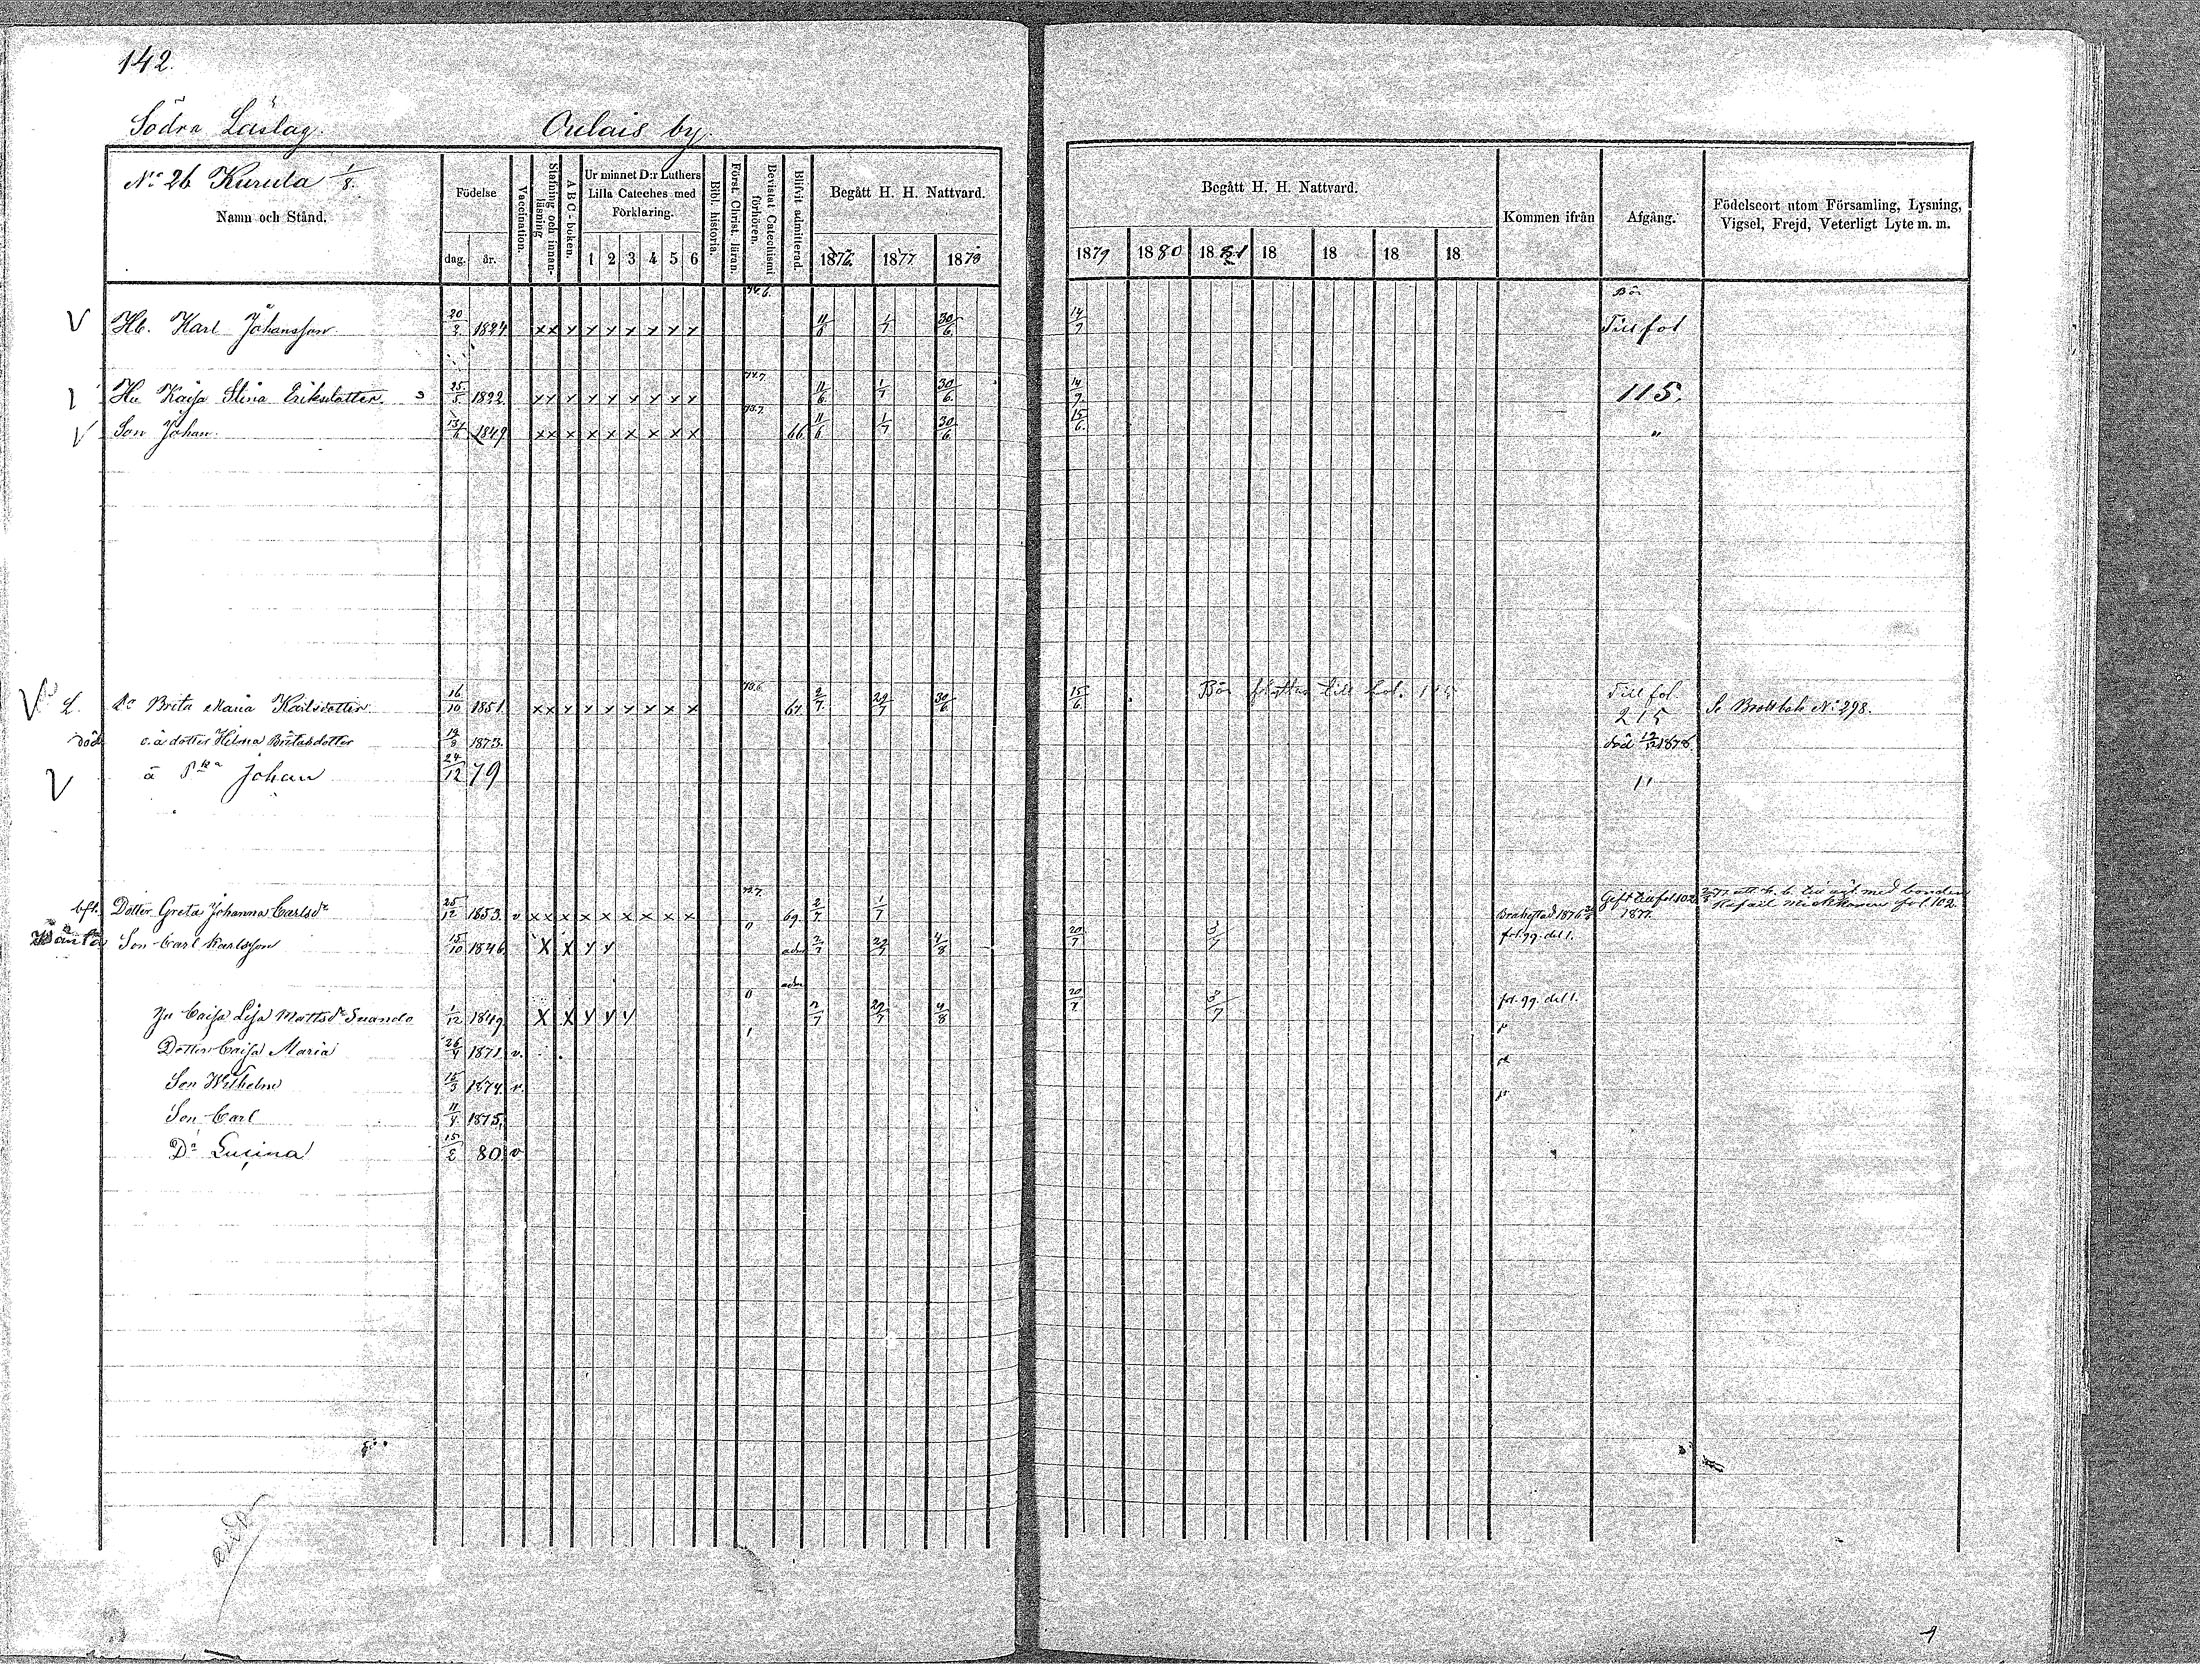 142.
Södra Läslag.
Oulais by.
No 26 Kurula 1/8.
Namn och Stånd.
Födelse
dag.
år.
Vaccination.
Stafning och innan-läsning
A B C-boken.
Ur minnet D:r Luthers
Lilla Cateches med
Förklaring.
1 2 3 4 5 6
Bibl. historia.
Först. Christ. läran.
Bevistat Catechismi förhören.
Blifvit admitterad.
Begått H. H. Nattvard.
1876. 1877 1878
Begått H. H. Nattvard.
1879 1880 1881 18 18 18 18
Kommen ifrån
Afgång.
Födelseort utom Församling, Lysning,
Vigsel, Frejd, Veterligt Lyte m. m.
Hb. Karl Johansson 20/2 1824 x x x x x x x x x 11/6 1/7 30/6 14/7 Till fol
Hu Kaisa Stina Eriksdotter 25/5 1822 x x x x x x x x x 11/6 1/7 30/6 14/7 115.
Son Johan 13/6 1849 x x x x x x x x x 66 11/6 1/7 30/6 15/6 "
Do Brita Maria Karlsdotter 16/10 1851. x x x x x x x x x 67. 2/7 29/7 30/6 15/6 Bör till fol. Till fol. 215 Se Brottbok No 298.
död o. ä dotter Helma Britasdotter 19/9 1873. död 12/12 1878.
ä Johan 24/12 79 "
bft. Dotter Greta Johanna Carlsdr 25/12 1853. v x x x x x x x x x 69. 2/7 1/7 Brahestad 1876 Gift till fol 102 1877. med bonden fol 102.
Son Carl Karlsson 15/10 1846. x x y y adm 2/7 29/7 4/8 20/7 3/7 fol. 99. del 1.
Hu Caisa Lisa Mattsdr Suando 1/12 1849 x x y y y adm 2/7 29/7 4/8 20/7 3/7 fol. 99. del 1.
Dotter Caisa Maria 26/4 1871. v.
Son Wilhelm 15/3 1874. v.
Son Carl 11/4 1875.
Do Lusina 15/2 80 v